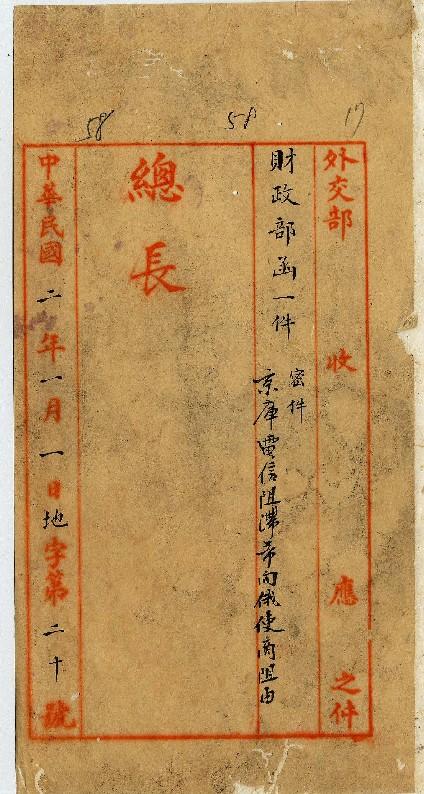 17
58
58
外交部 收 應 之件
財政部函一件
密件
京庫電信阻滯希向俄使商阻由
總長
中華民國二年一月一日地字第二十號